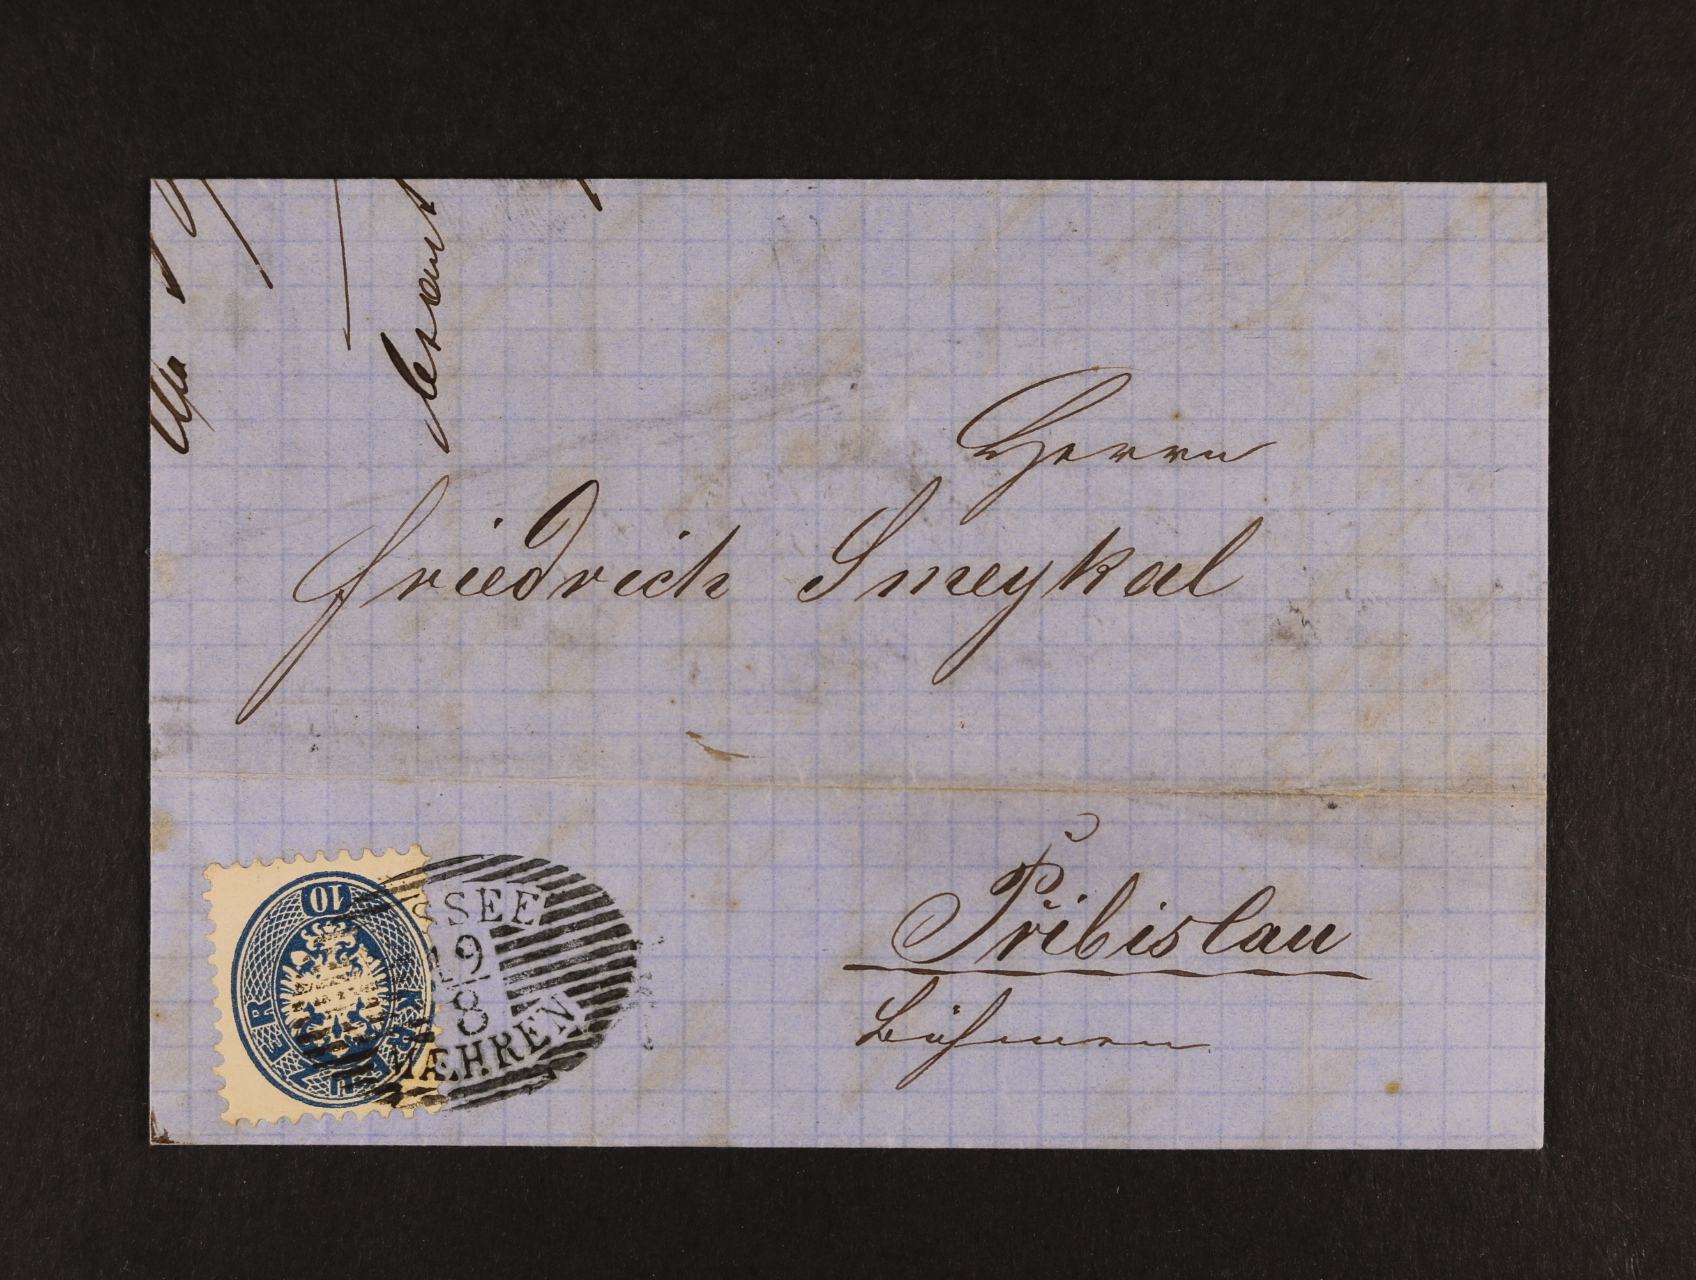 Herrn
Friedrich Smeykal
Přibislau
Böhmen
10 KREUZER
SSEE
19
8
MÆHREN